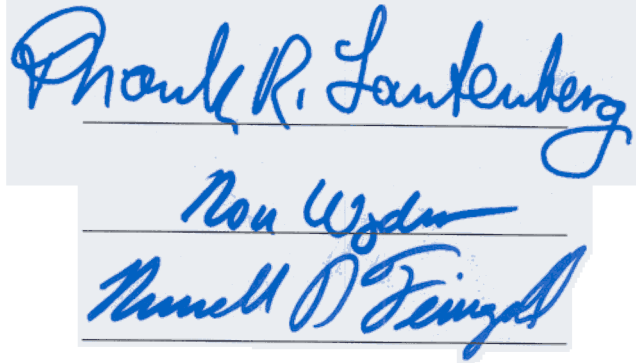 Frank R. Lautenberg
Ron Wyden
Russell D Feingold